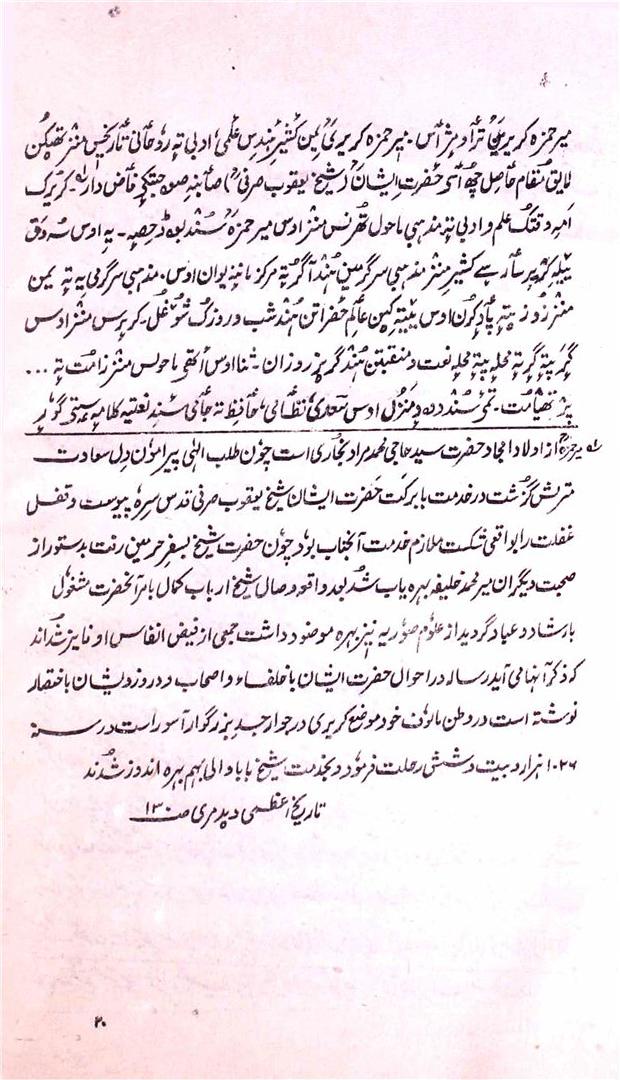 میر حمزہ کریریؒ تراد مٕژ أس۔ میر حمزہ کریریؒ یمن کشیٖر ہندِس علمی، ادبی تہٕ روحانی تأریخس منز تھیکن
لایق مقام حاصل چھُ أسۍ حضرتِ ایشان (شیخ یعقوب صرفیؒ) صأبنہِ صحبتکۍ فأض دار لہ۔ کریرک
امہِ وقتک علم و ادبی تہٕ مذہبی ماحول تھرنس منز اوس میر حمزہؒ سُند بوڈ حصہٕ۔ یہِ اوس سُہ وق
ییلہِ کریر سأرے کشیرِ منز مذہبی سرگرمین ہُند اگر تہٕ مرکز ماننہٕ یوان اوس۔ مذہبی سرگرمی یہِ تہٕ یمن
منز روز تہٕ پأدٕ کرٕن اوس ییتہِ کین عالم حضراتن ہُند شب و روزُک شوغل۔ کریرس منز اوس
گرٕ پتہٕ گرٕ تہٕ محلہٕ پتہٕ محلہٕ نعت و منقبتن ہُند گریز روزان۔ ثنا اوس امٔی ماحولس منز زامت تہٕ ...
پرتھیامت۔ تمۍ سُند ددہ منزُل اوس سعدی، نظامی، حافظ تہٕ جامی سٕندِ نعتیہ کلامہٕ ستۍ گومر
لہ میر حمزہؒ از اولاد امجاد حضرت سید حاجی محمد مراد بخاری است چون طلب الٰہی پیرامون دِل سعادت
مترش گزشت در خدمت بابرکت حضرت ایشان شیخ یعقوب صرفی قدس سرہ پیوست و قفل
غفلت را بواقعی شکست ملازم خدمت آنجناب بود چون حضرت شیخ بسفر حرمین رفت بدستور از
صحبت دیگران میر محمد خلیفہ بہرہ یاب شد بعد واقعہ وصال شیخ ارباب کمال بامر آنحضرت مشغول
بارشاد و عباد گردید از علوم صوریہ نیز بہرہ موضود داشت جمعی از فیض انفاس او فایز شدند
کہ ذکر آنہا می آید رسالہ در احوال حضرت ایشان با خلفاء و اصحاب و در روز ویشان باختصار
نوشتہ است در وطن مالوف خود موضع کریری در جوار جد بزرگوار آسوراست در سنہ
۱۰۲۶ ہزار و بیست و شش رحلت فرمود و بخدمت شیخ بابا والی بہم بہرہ اندوز شدند
تاریخ اعظمی دیدمری صـ ۱۳۰
۲۰